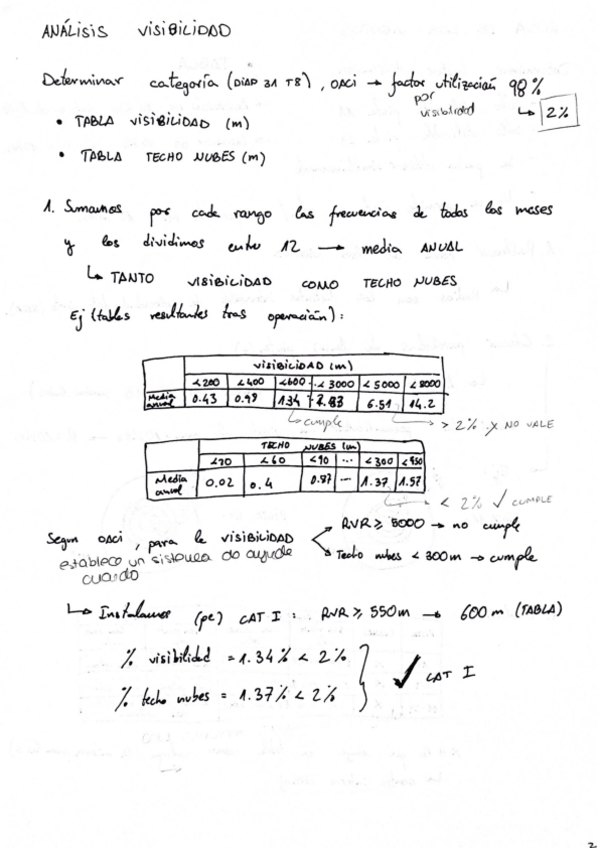 ANÁLISIS VISIBILIDAD
Determinar categoría (DIAP 31 T8), OACI → factor utilización 98%
por visibilidad
↳ 2%
• TABLA VISIBILIDAD (m)
• TABLA TECHO NUBES (m)
1. Sumamos por cada rango las frecuencias de todos los meses
y los dividimos entre 12 → media ANUAL
↳ TANTO VISIBILIDAD COMO TECHO NUBES
Ej (tablas resultantes tras operación):
VISIBILIDAD (m)
<200 <400 <600 < 3000 < 5000 < 8000
Media anual 0.43 0.98 1.34 6.51 14.2
↳ cumple
→ > 2% X NO VALE
TECHO NUBES (m)
<20 <60 <90 ... < 300 < 450
Media anual 0.02 0.4 0.87 ... 1.37 1.57
→ < 2% ✓ CUMPLE
Según OACI, para la VISIBILIDAD
→ RVR ≥ 5000 → no cumple
→ Techo nubes < 300m → cumple
establezco un sistema de ayuda
cuando
↳ Instalamos (pe) CAT I: RVR ≥ 550m → 600 m (TABLA)
% visibilidad = 1.34% < 2%
% techo nubes = 1.37% < 2%
✓ CAT I
2